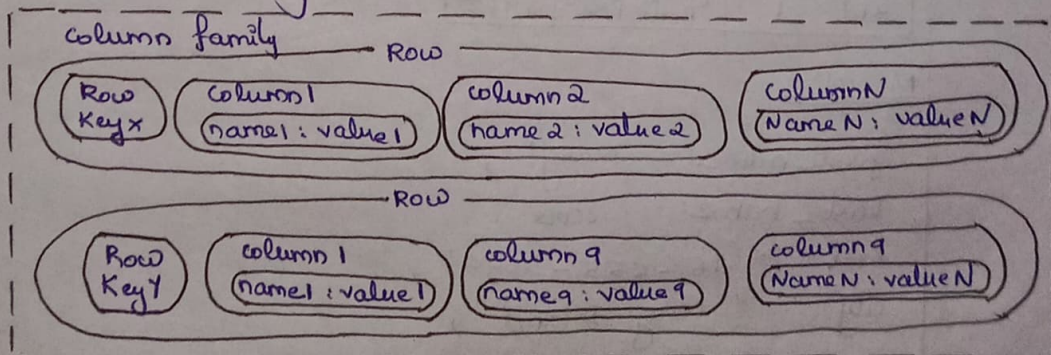 column family
Row
Row
Key x
column1
name1 : value1
column2
name2 : value2
columnN
NameN : valueN
Row
Row
Key Y
column1
name1 : value1
column9
name9 : value9
column9
NameN : valueN